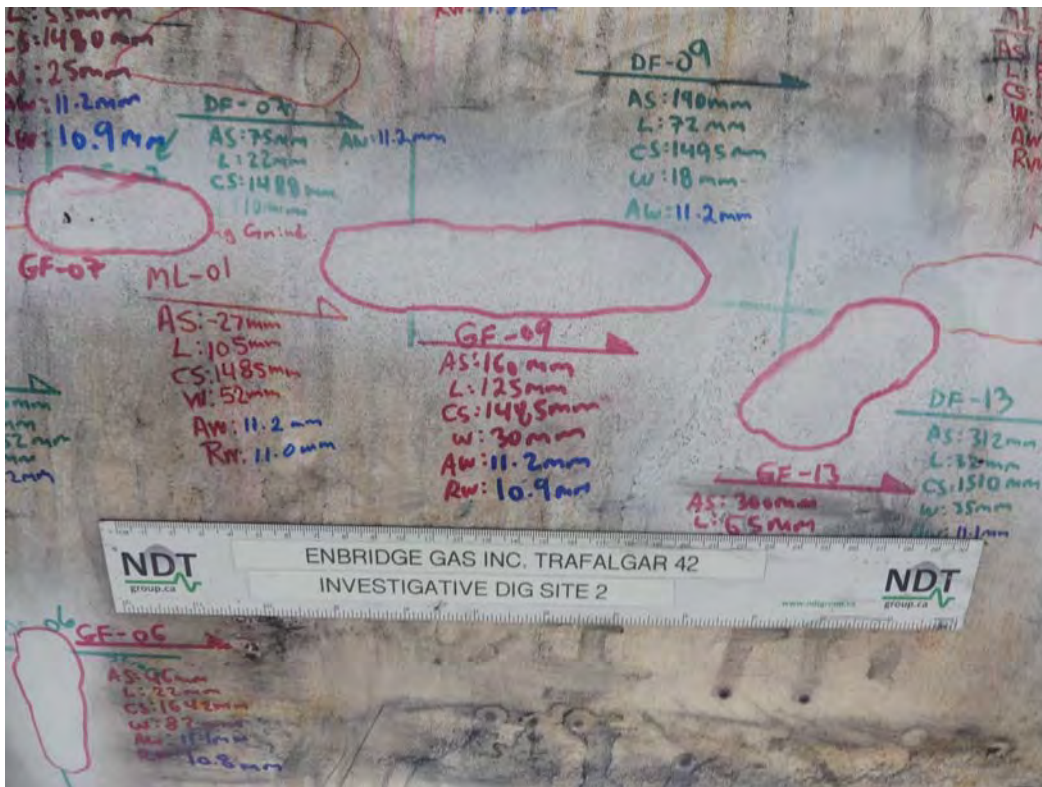 L:55mm
CS:1480mm
W:25mm
AW:11.2mm
RW:10.9mm
DF-07
AS:75mm
L:22mm
CS:1488mm
10mm
AW:11.2mm
DF-09
AS:190mm
L:72mm
CS:1495mm
W:18mm
AW:11.2mm
GF-07
Grind
ML-01
AS:-27mm
L:105mm
CS:1485mm
W:52mm
AW:11.2mm
RW:11.0mm
GF-09
AS:160mm
L:125mm
CS:1485mm
W:30mm
AW:11.2mm
RW:10.9mm
GF-13
AS:300mm
L:65mm
DF-13
AS:312mm
L:32mm
CS:1510mm
W:35mm
11.1mm
AS
L:
CS:
W:
AW
RW
52mm
2mm
NDT
group.ca
ENBRIDGE GAS INC. TRAFALGAR 42
INVESTIGATIVE DIG SITE 2
www.ndtgroup.ca
NDT
group.ca
06
GF-06
AS:96mm
L:22mm
CS:1642mm
W:82mm
AW:11.1mm
RW:10.8mm